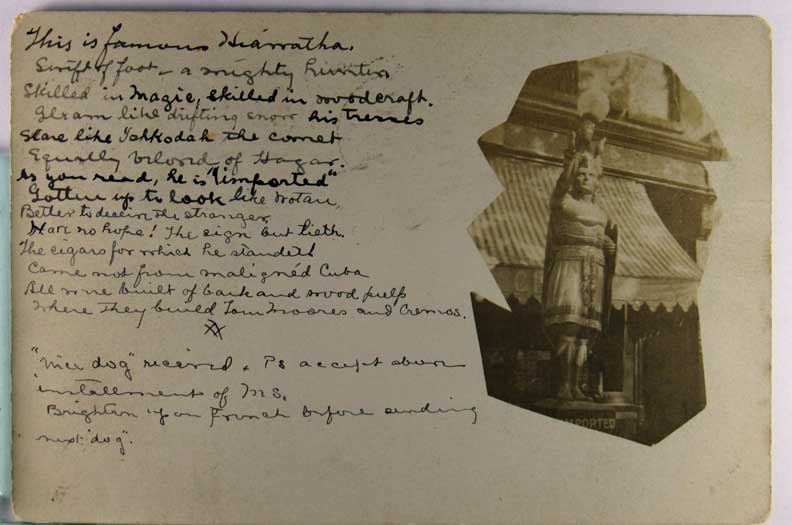 This is famous Hiawatha.
Swift of foot – a mighty hunter
Skilled in Magic, skilled in woodcraft.
Gleam like drifting snow his tresses
Glare like Ishkodah the comet
Equally beloved of Hagar.
As you read, he is "imported"
Gotten up to look like Wotan
Better to deceive the stranger.
Have no hope! The sign but lieth.
The cigars for which he standeth
Came not from maligned Cuba
All were built of bark and wood pulp
Where they build Tom Moores and Cremos.
"Nice dog" received. Ps accept above
installment of MS.
Brighten up on French before sending
next "dog".
IMPORTED